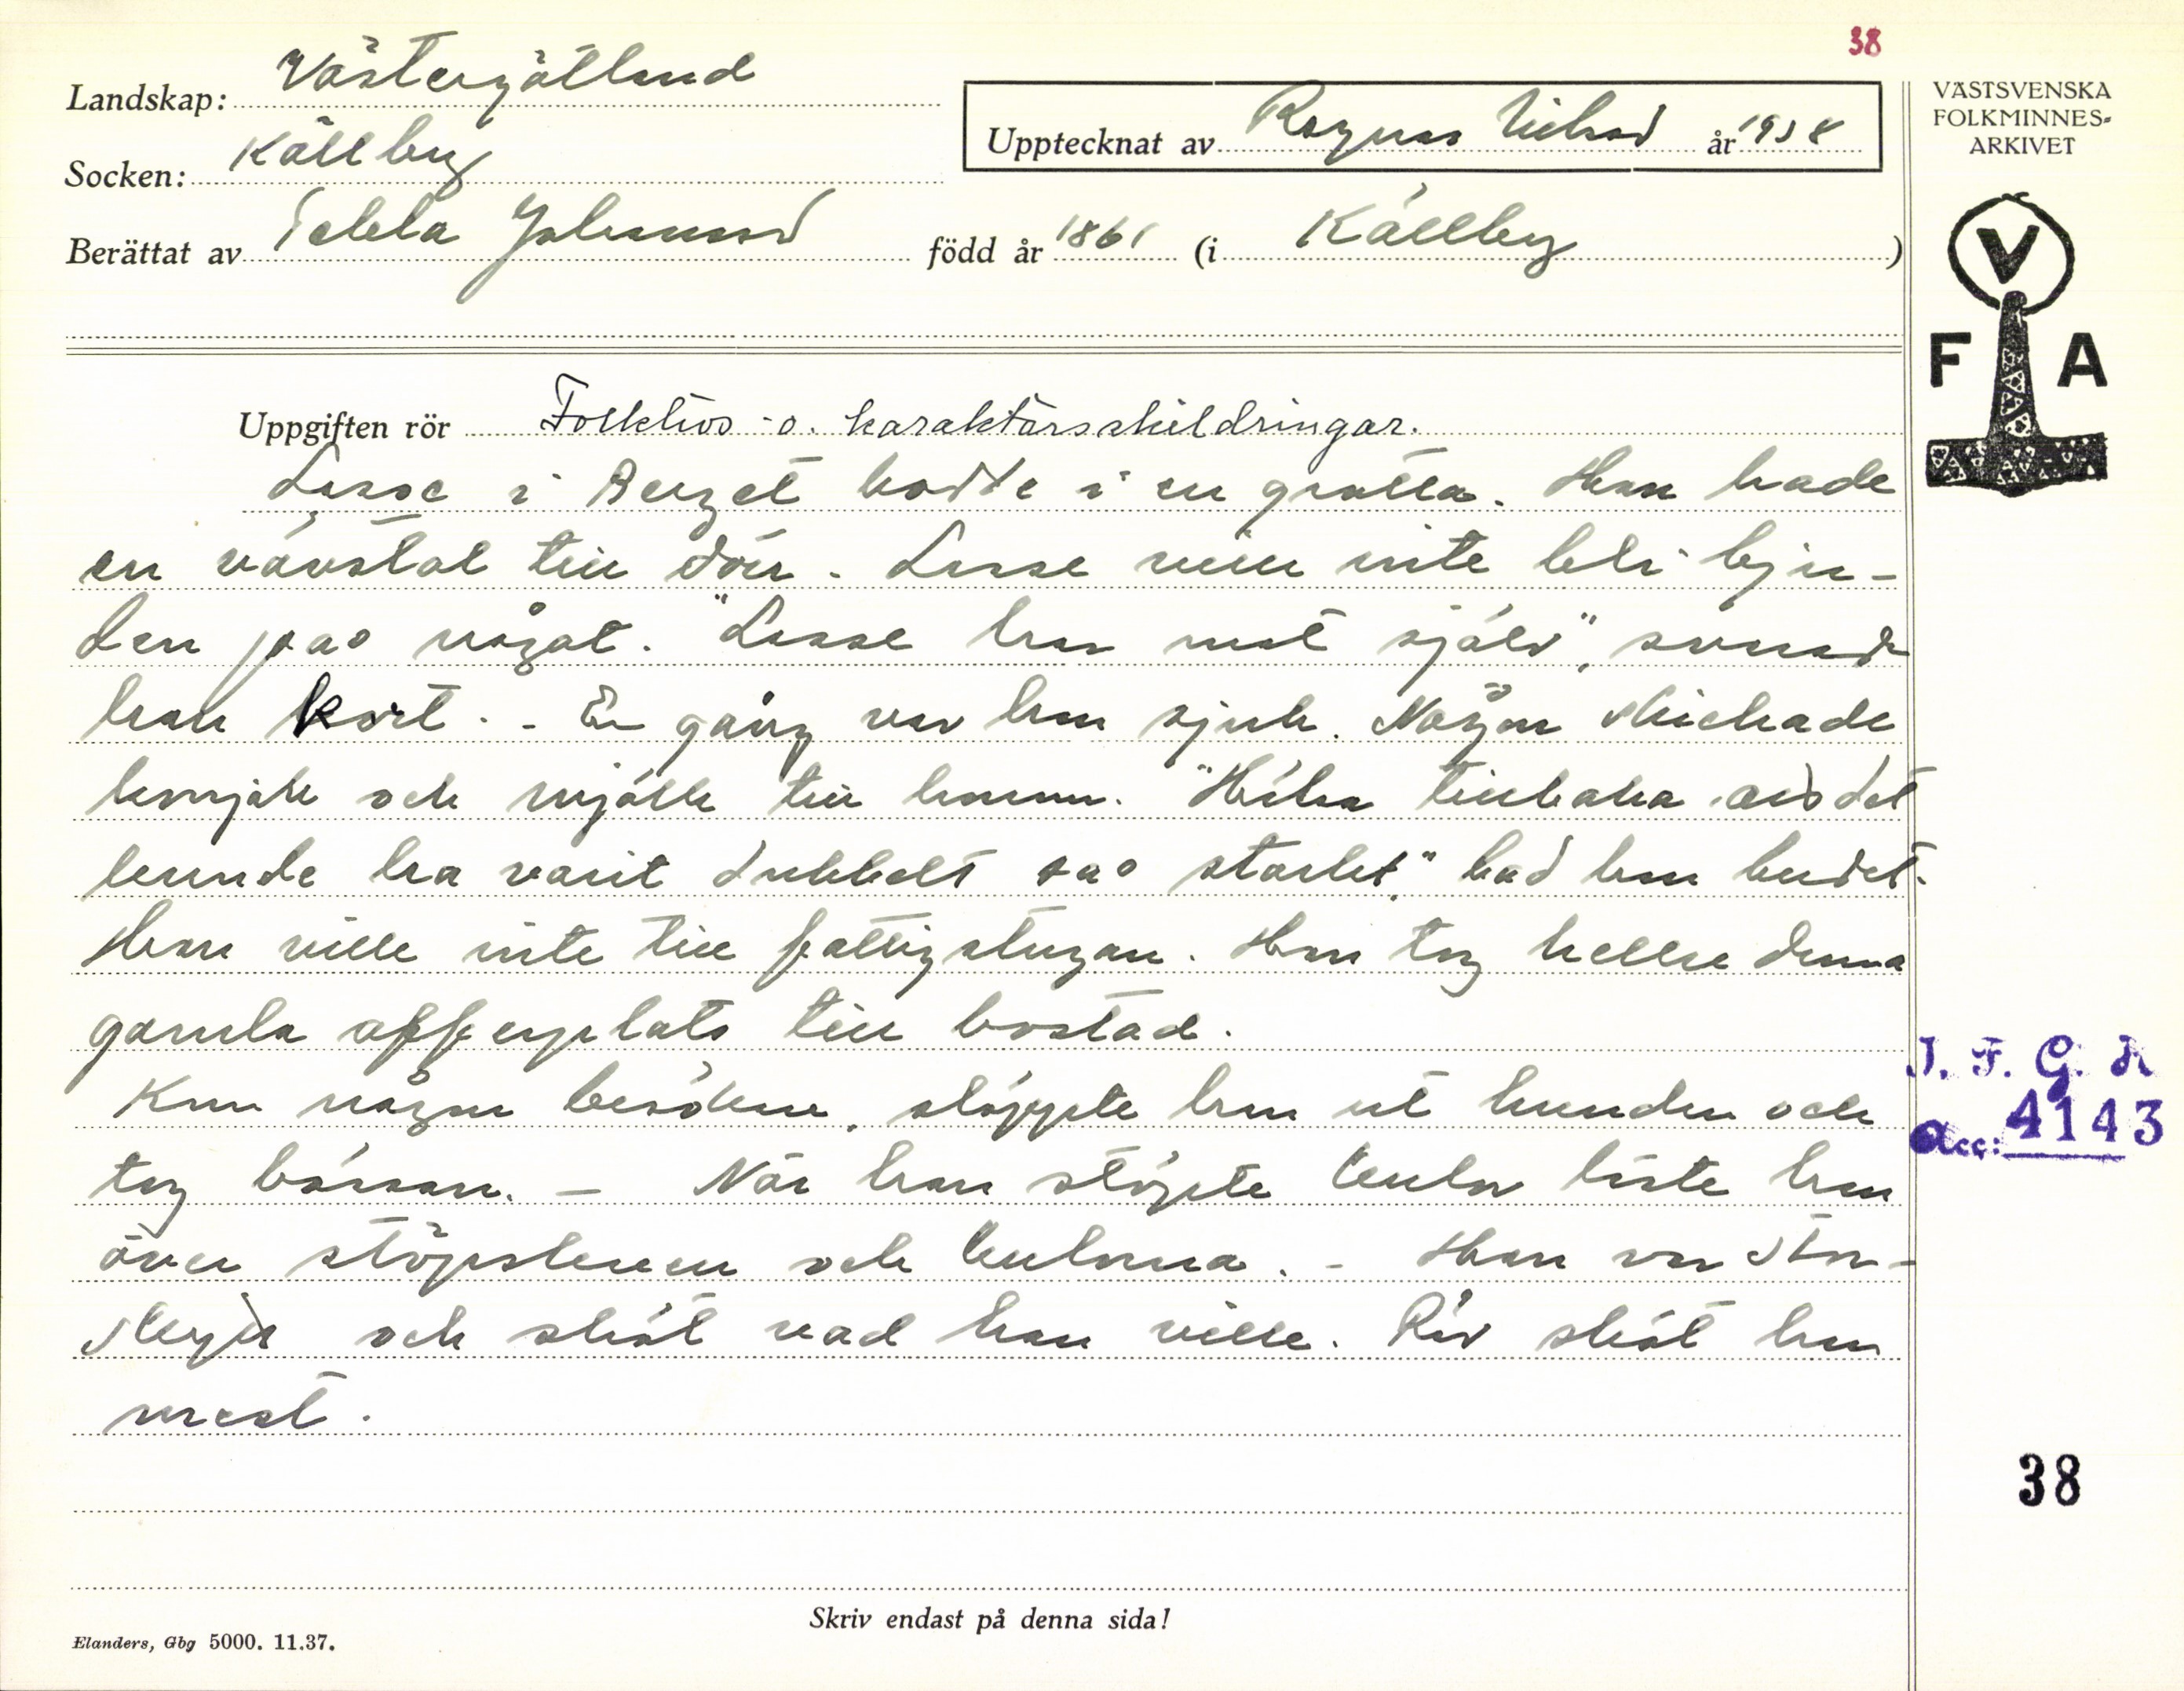 38
Landskap: Västergötland
Socken: Källby
Berättat av Tekla Johansson född år 1861 (i Källby)
Upptecknat av Ragnar Nilsson år 1938
VÄSTSVENSKA
FOLKMINNES-
ARKIVET
V
F A
Uppgiften rör Folklivs- o. karaktärsskildringar.
Lasse i Berget bodde i en grotta. Han hade
en vävstol till dörr. Lasse ville inte bli bju-
den på något. "Lasse har mat själv", svarade
han kort. - En gång var han sjuk. Någon skickade
honom och mjölk till honom. "Hälsa tillbaka att det
kunde ha varit dubbelt så starkt," bad han budet.
Han ville inte till fattigstugan. Han tog hellre denna
gamla offerplats till bostad.
Kom någon besökare, släppte han ut hunden och
tog bössan. - När han stöpte kulor läste han
över stöpsleven och kulorna. - Han var stor-
skytt och sköt vad han ville. Räv sköt han
mest.
I. F. G. H
Acc: 4143
38
Skriv endast på denna sida!
Elanders, Gbg 5000. 11.37.